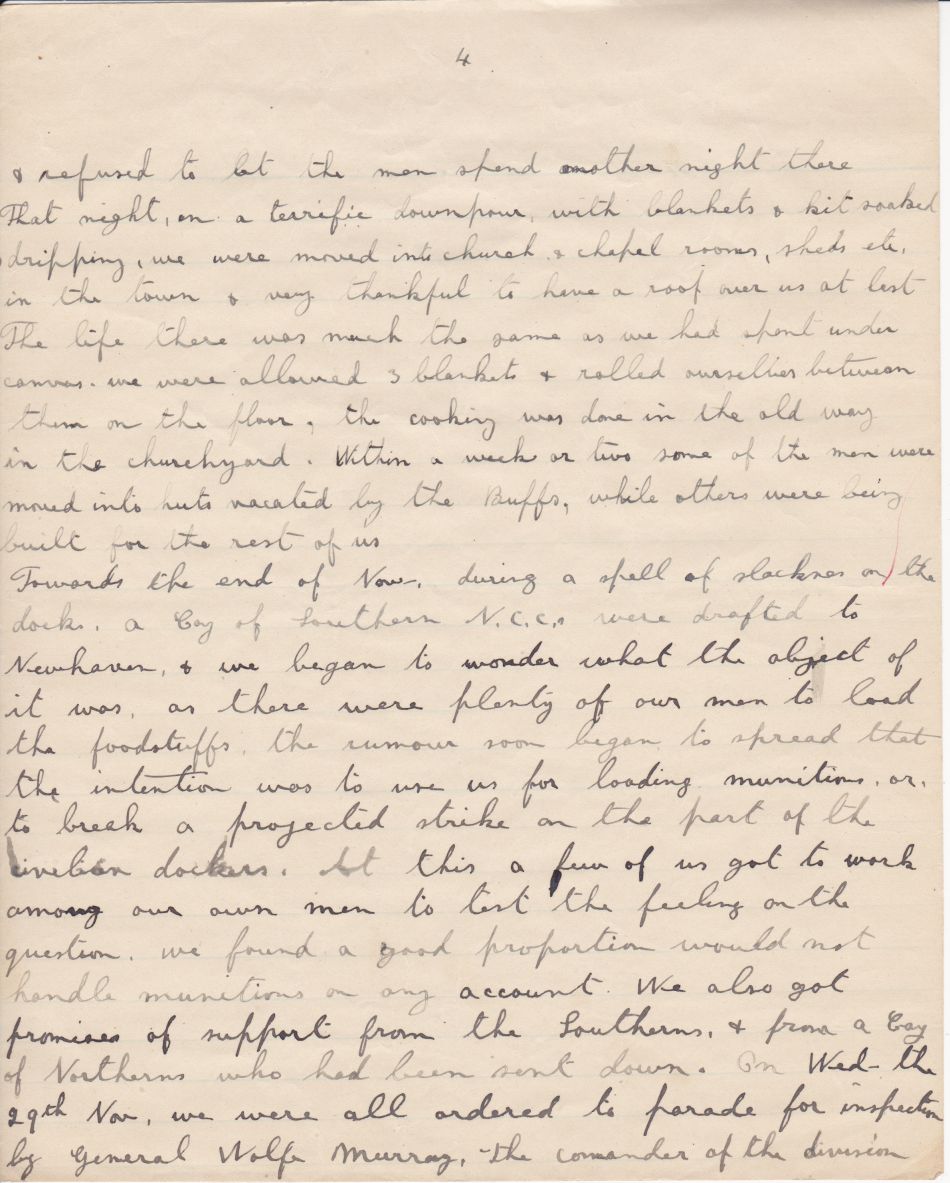 4
& refused to let the men spend another night there
That night, in a terrific downpour, with blankets & kit soaked
dripping, we were moved into church & chapel rooms, sheds etc.
in the town & very thankful to have a roof over us at last
The life there was much the same as we had spent under
canvas. we were allowed 3 blankets & rolled ourselves between
them on the floor, the cooking was done in the old way
in the churchyard. Within a week or two some of the men were
moved into huts vacated by the Buffs, while others were being
built for the rest of us
Towards the end of Nov-, during a spell of slackness on the
docks, a Coy of Southern N.C.C.s were drafted to
Newhaven, & we began to wonder what the object of
it was, as there were plenty of our men to load
the foodstuffs. the rumour soon began to spread that
the intention was to use us for loading munitions, or,
to break a projected strike on the part of the
civelian dockers. At this a few of us got to work
among our own men to test the feeling on the
question. we found a good proportion would not
handle munitions on any account. We also got
promises of support from the Southerns, & from a Coy
of Northerns who had been sent down. On Wed- the
29th Nov, we were all ordered to parade for inspection
by General Wolfe Murray, the comander of the division